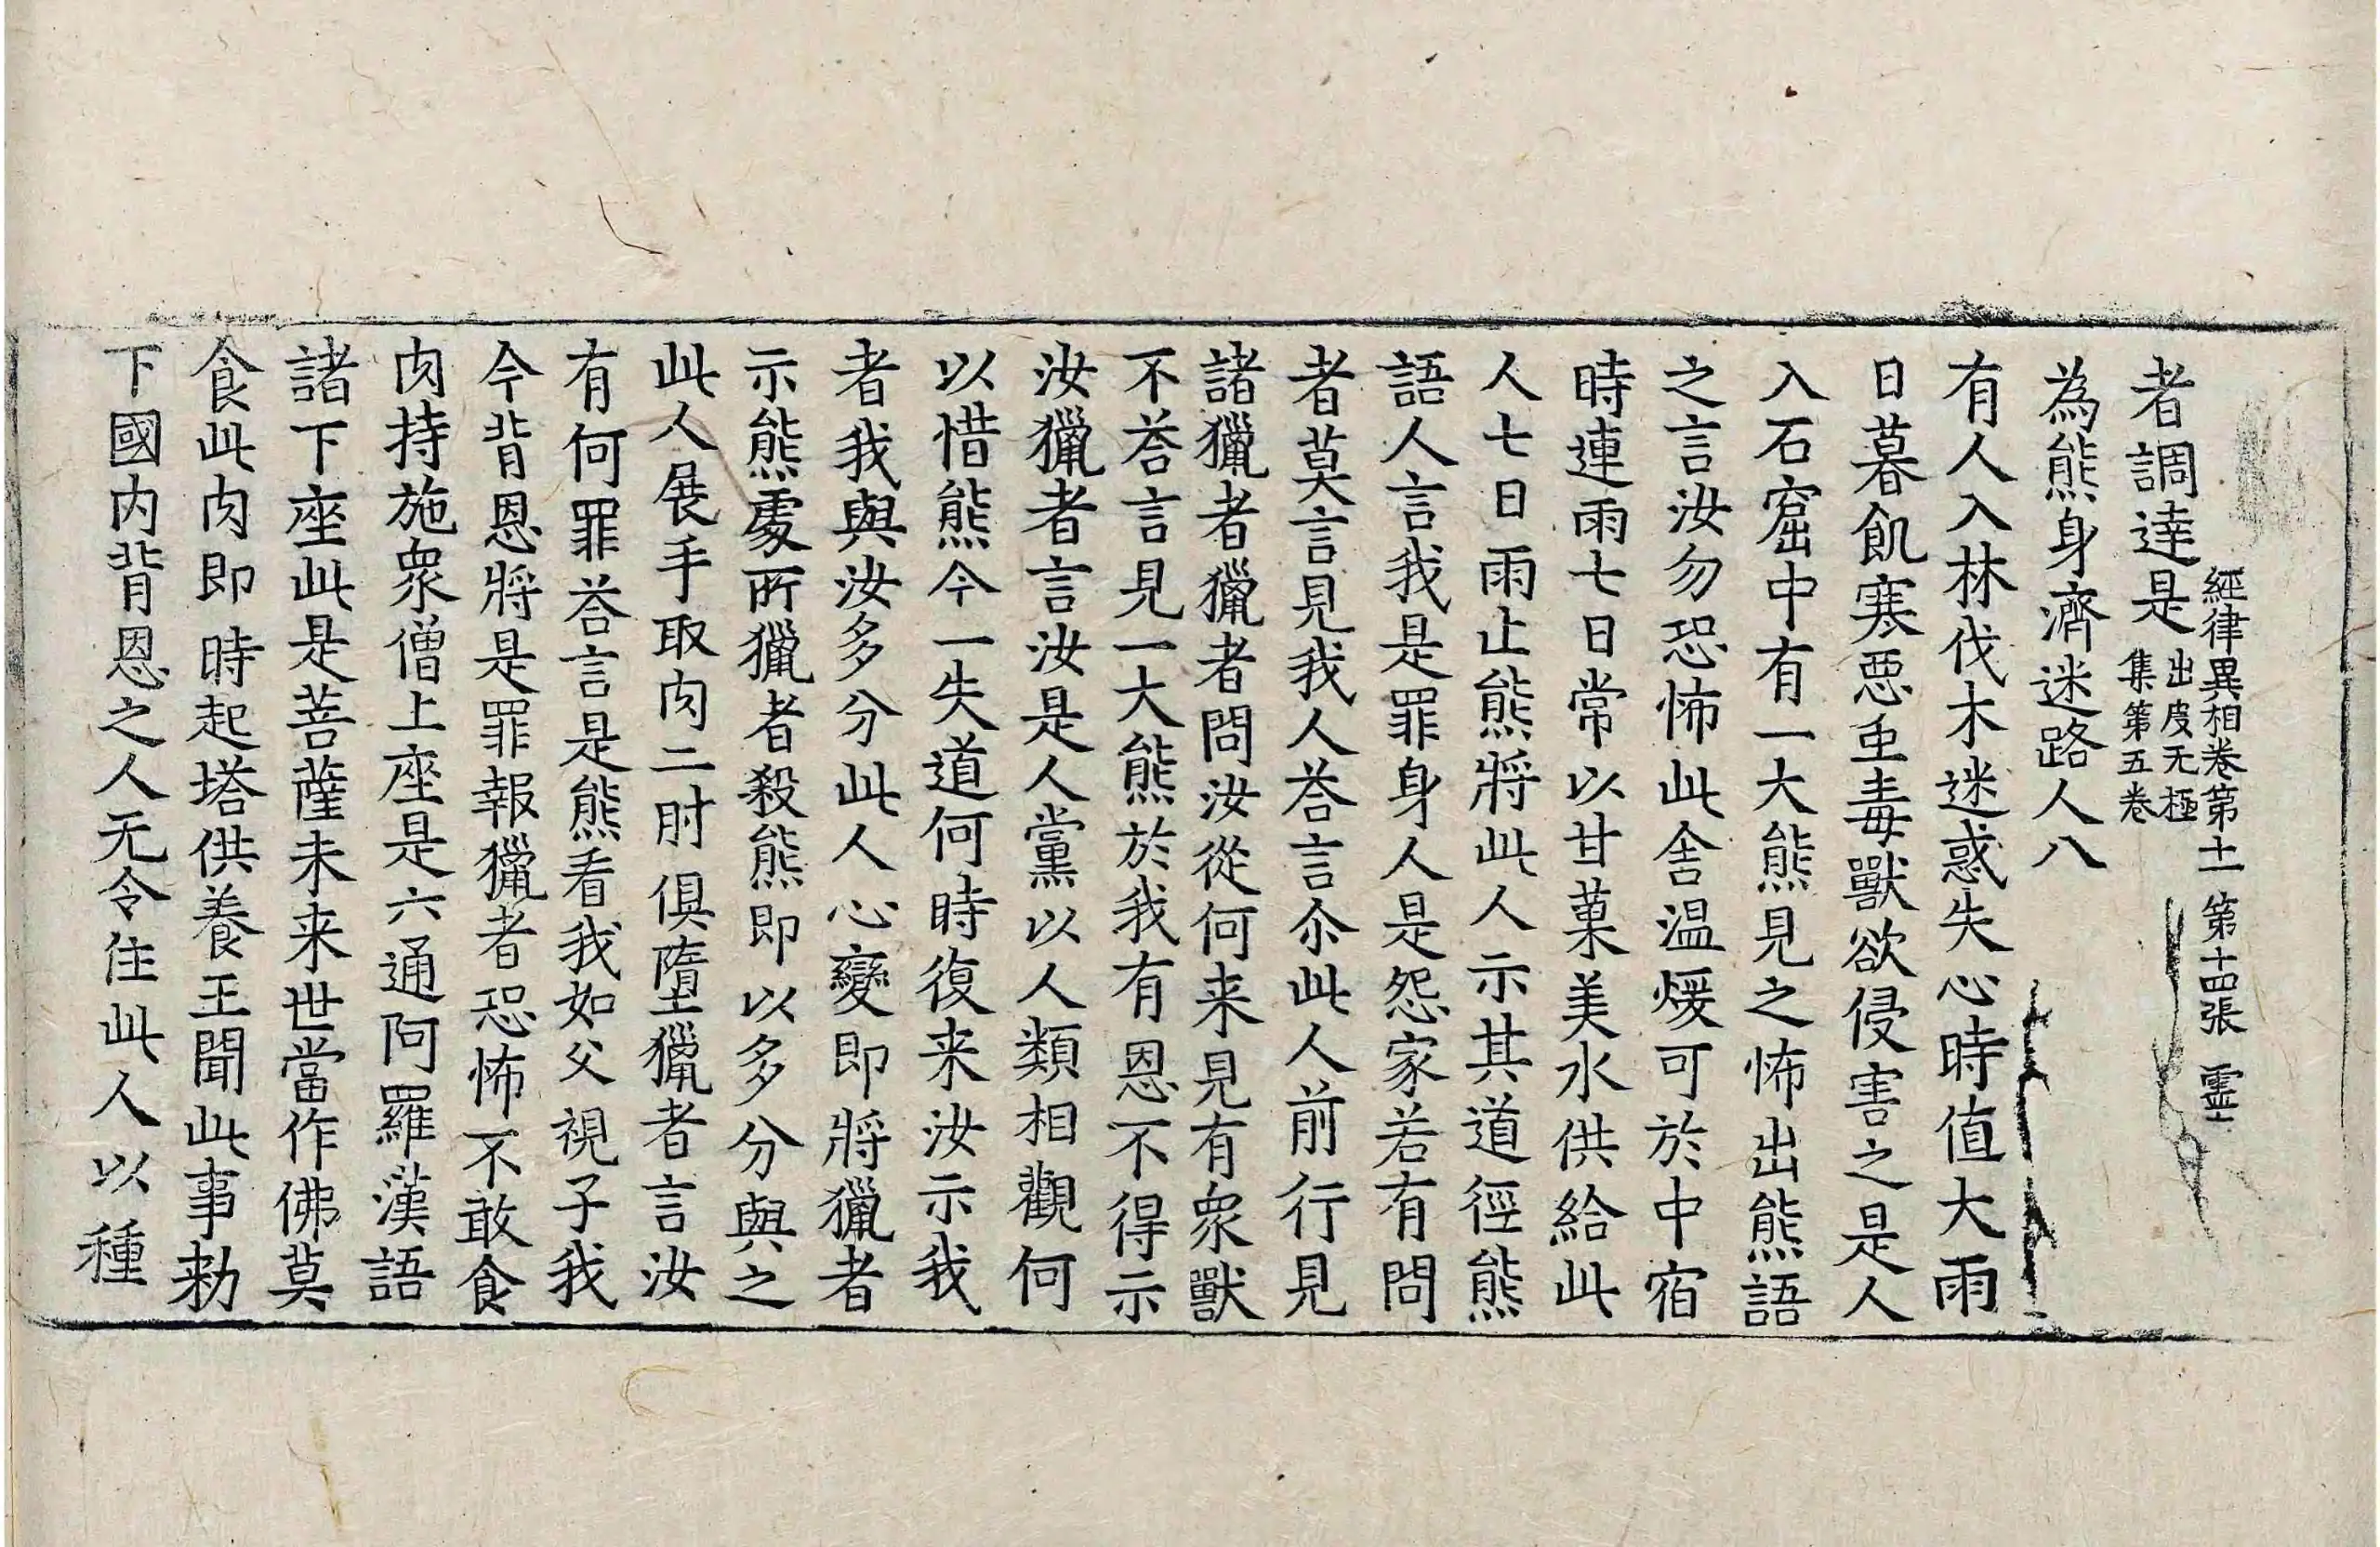 經律異相卷第十一 第十四張 靈
者調達是出度无極集第五卷
為熊身濟迷路人八
有人入林伐木迷惑失心時值大雨
日暮飢寒惡重毒獸欲侵害之是人
入石窟中有一大熊見之怖出熊語
之言汝勿恐怖此舍温煖可於中宿
時連雨七日常以甘菓美水供給此
人七日雨止熊將此人示其道徑熊
語人言我是罪身人是怨家若有問
者莫言見我人荅言尒此人前行見
諸獵者獵者問汝從何来見有衆獸
不荅言見一大熊於我有恩不得示
汝獵者言汝是人黨以人類相觀何
以惜熊今一失道何時復来汝示我
者我與汝多分此人心變即將獵者
示熊處所獵者殺熊即以多分與之
此人展手取肉二肘俱墮獵者言汝
有何罪荅言是熊看我如父視子我
今背恩將是罪報獵者恐怖不敢食
肉持施衆僧上座是六通阿羅漢語
諸下座此是菩薩未来世當作佛莫
食此肉即時起塔供養王聞此事勑
下國内背恩之人无令住此人以種